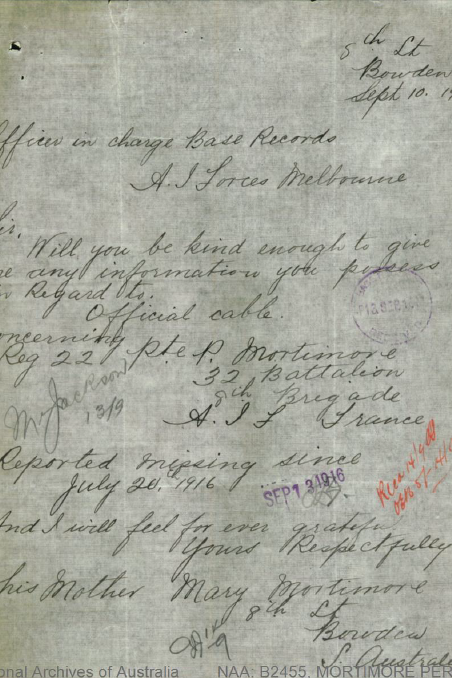 8th St
Bowden
Sept 10. 19
Officer in charge Base Records
A. I Forces Melbourne
Sir,
Will you be kind enough to give
me any information you possess
in Regard to.
Official cable.
concerning
Reg 22, Pte P. Mortimore
32 Battalion
8th Brigade
A. I F France
Mr Jackson
13/9
Reported missing since
July 20th, 1916
SEP 13 1916
And I will feel for ever grateful
Yours Respectfully
his Mother Mary Mortimore
8th St
Bowden
S. Australia
National Archives of Australia NAA: B2455, MORTIMORE PER